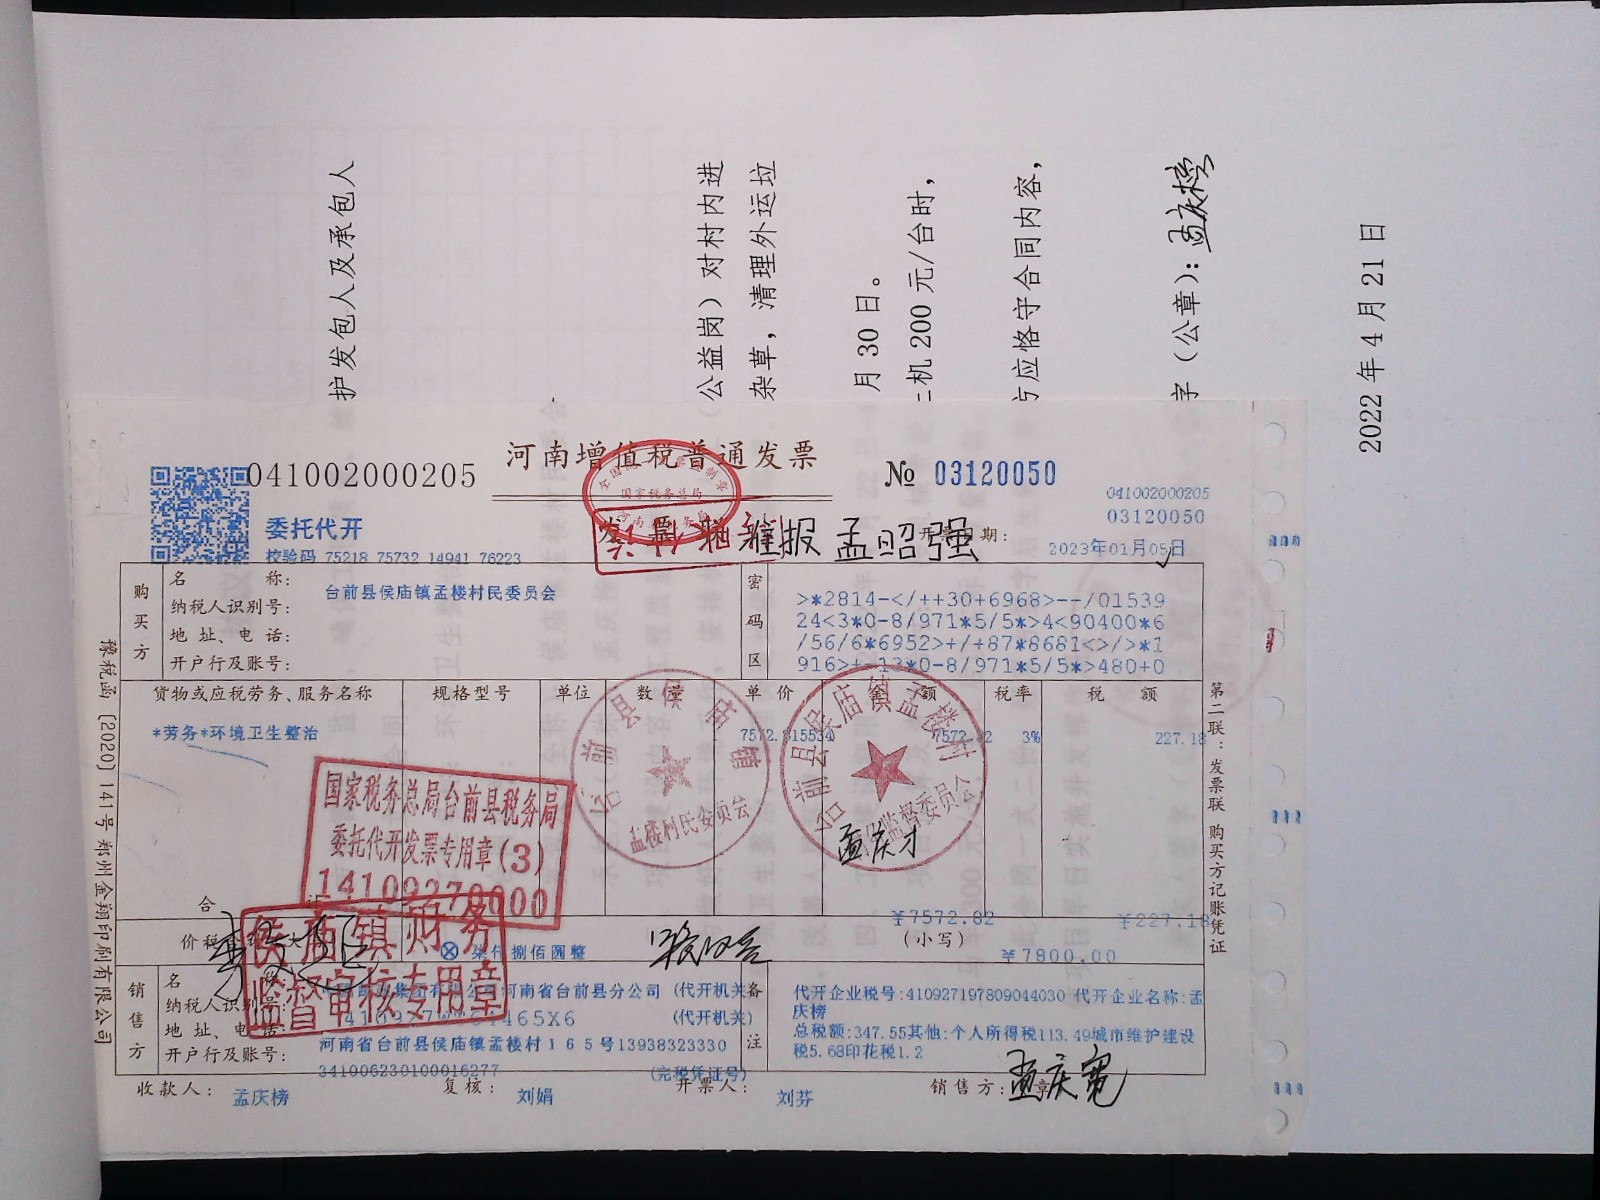 护发包人及承包人
公益岗）对村内进
杂草，清理外运垃
月30日。
机200元/台时，
方应恪守合同内容，
字（公章）：孟庆榜
2022年4月21日
河南增值税普通发票
041002000205
№ 03120050
041002000205
03120050
委托代开
校验码 75218 75732 14941 76223
孟昭强
开票日期：
2023年01月05日
购买方
名称：
台前县侯庙镇孟楼村民委员会
纳税人识别号：
地址、电话：
开户行及账号：
密码区
>*2814-</++30+6968>--/01539
24<3*0-8/971*5/5*>4<90400*6
/56/6*6952>+/+87*8681<>/>*1
916>+-13*0-8/971*5/5*>480+0
货物或应税劳务、服务名称 规格型号 单位 数量 单价 金额 税率 税额
*劳务*环境卫生整治 7572.815534 7572.82 3% 227.18
国家税务总局台前县税务局
委托代开发票专用章(3)
台前县侯庙镇
孟楼村民委员会
台前县侯庙镇孟楼村
监督委员会
孟庆才
合
¥7572.82 ¥227.18
柒仟捌佰圆整
(小写)
¥7800.00
侯庙镇财务
监督审核专用章
销售方
名称
河南省台前县分公司 (代开机关)
纳税人识别号
(代开机关)
地址、电
河南省台前县侯庙镇孟楼村165号13938323330
开户行及账号：
341006230100016277
(完税凭证号)
备注
代开企业税号:410927197809044030 代开企业名称:孟
庆榜
总税额:347.55其他:个人所得税113.49城市维护建设
税5.68印花税1.2
收款人：
孟庆榜
复核：
刘娟
开票人：
刘芬
销售方：
孟庆宽
第二联：发票联 购买方记账凭证
豫税函〔2020〕141号郑州金翔印刷有限公司